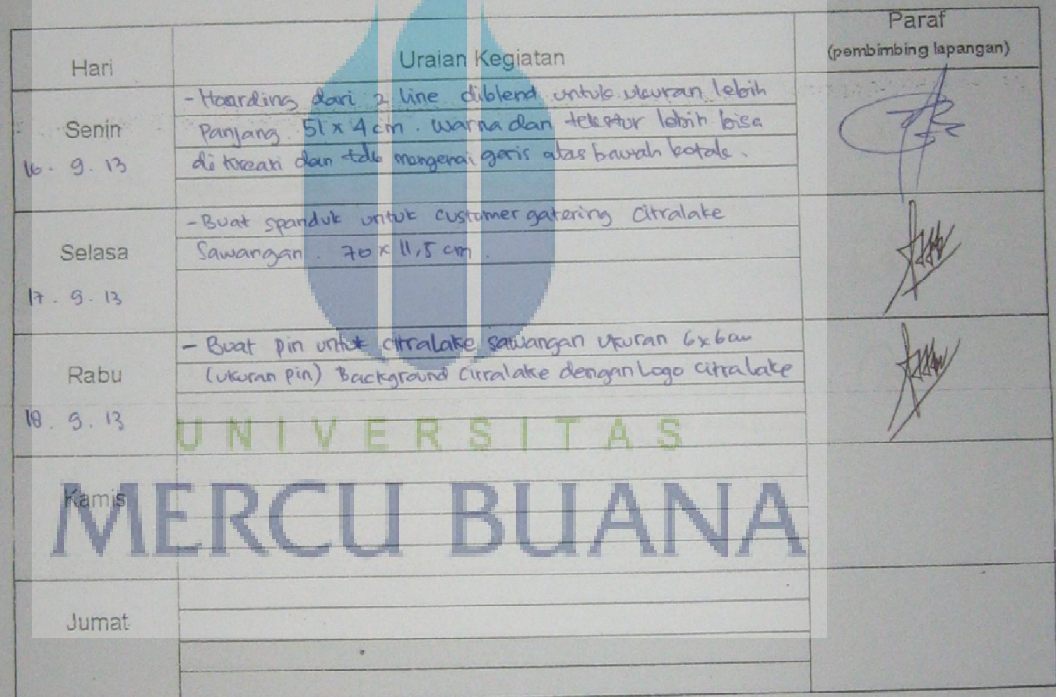 Hari
Uraian Kegiatan
Paraf
(pembimbing lapangan)
Senin
16 . 9 . 13
- Hoarding dari 2 line diblend untuk ukuran lebih
Panjang 51 x 4 cm . warna dan tekstur lebih bisa
di kreasi dan tdk mengenai garis atas bawah kotak .
Selasa
17 . 9 . 13
- Buat spanduk untuk customer gatering Citralake
Sawangan . 70 x 11,5 cm .
Rabu
18 . 9 . 13
- Buat pin untuk citralake sawangan ukuran 6x6cm
(ukuran pin) Background Citralake dengan Logo Citralake
UNIVERSITAS
Kamis
MERCU BUANA
Jumat